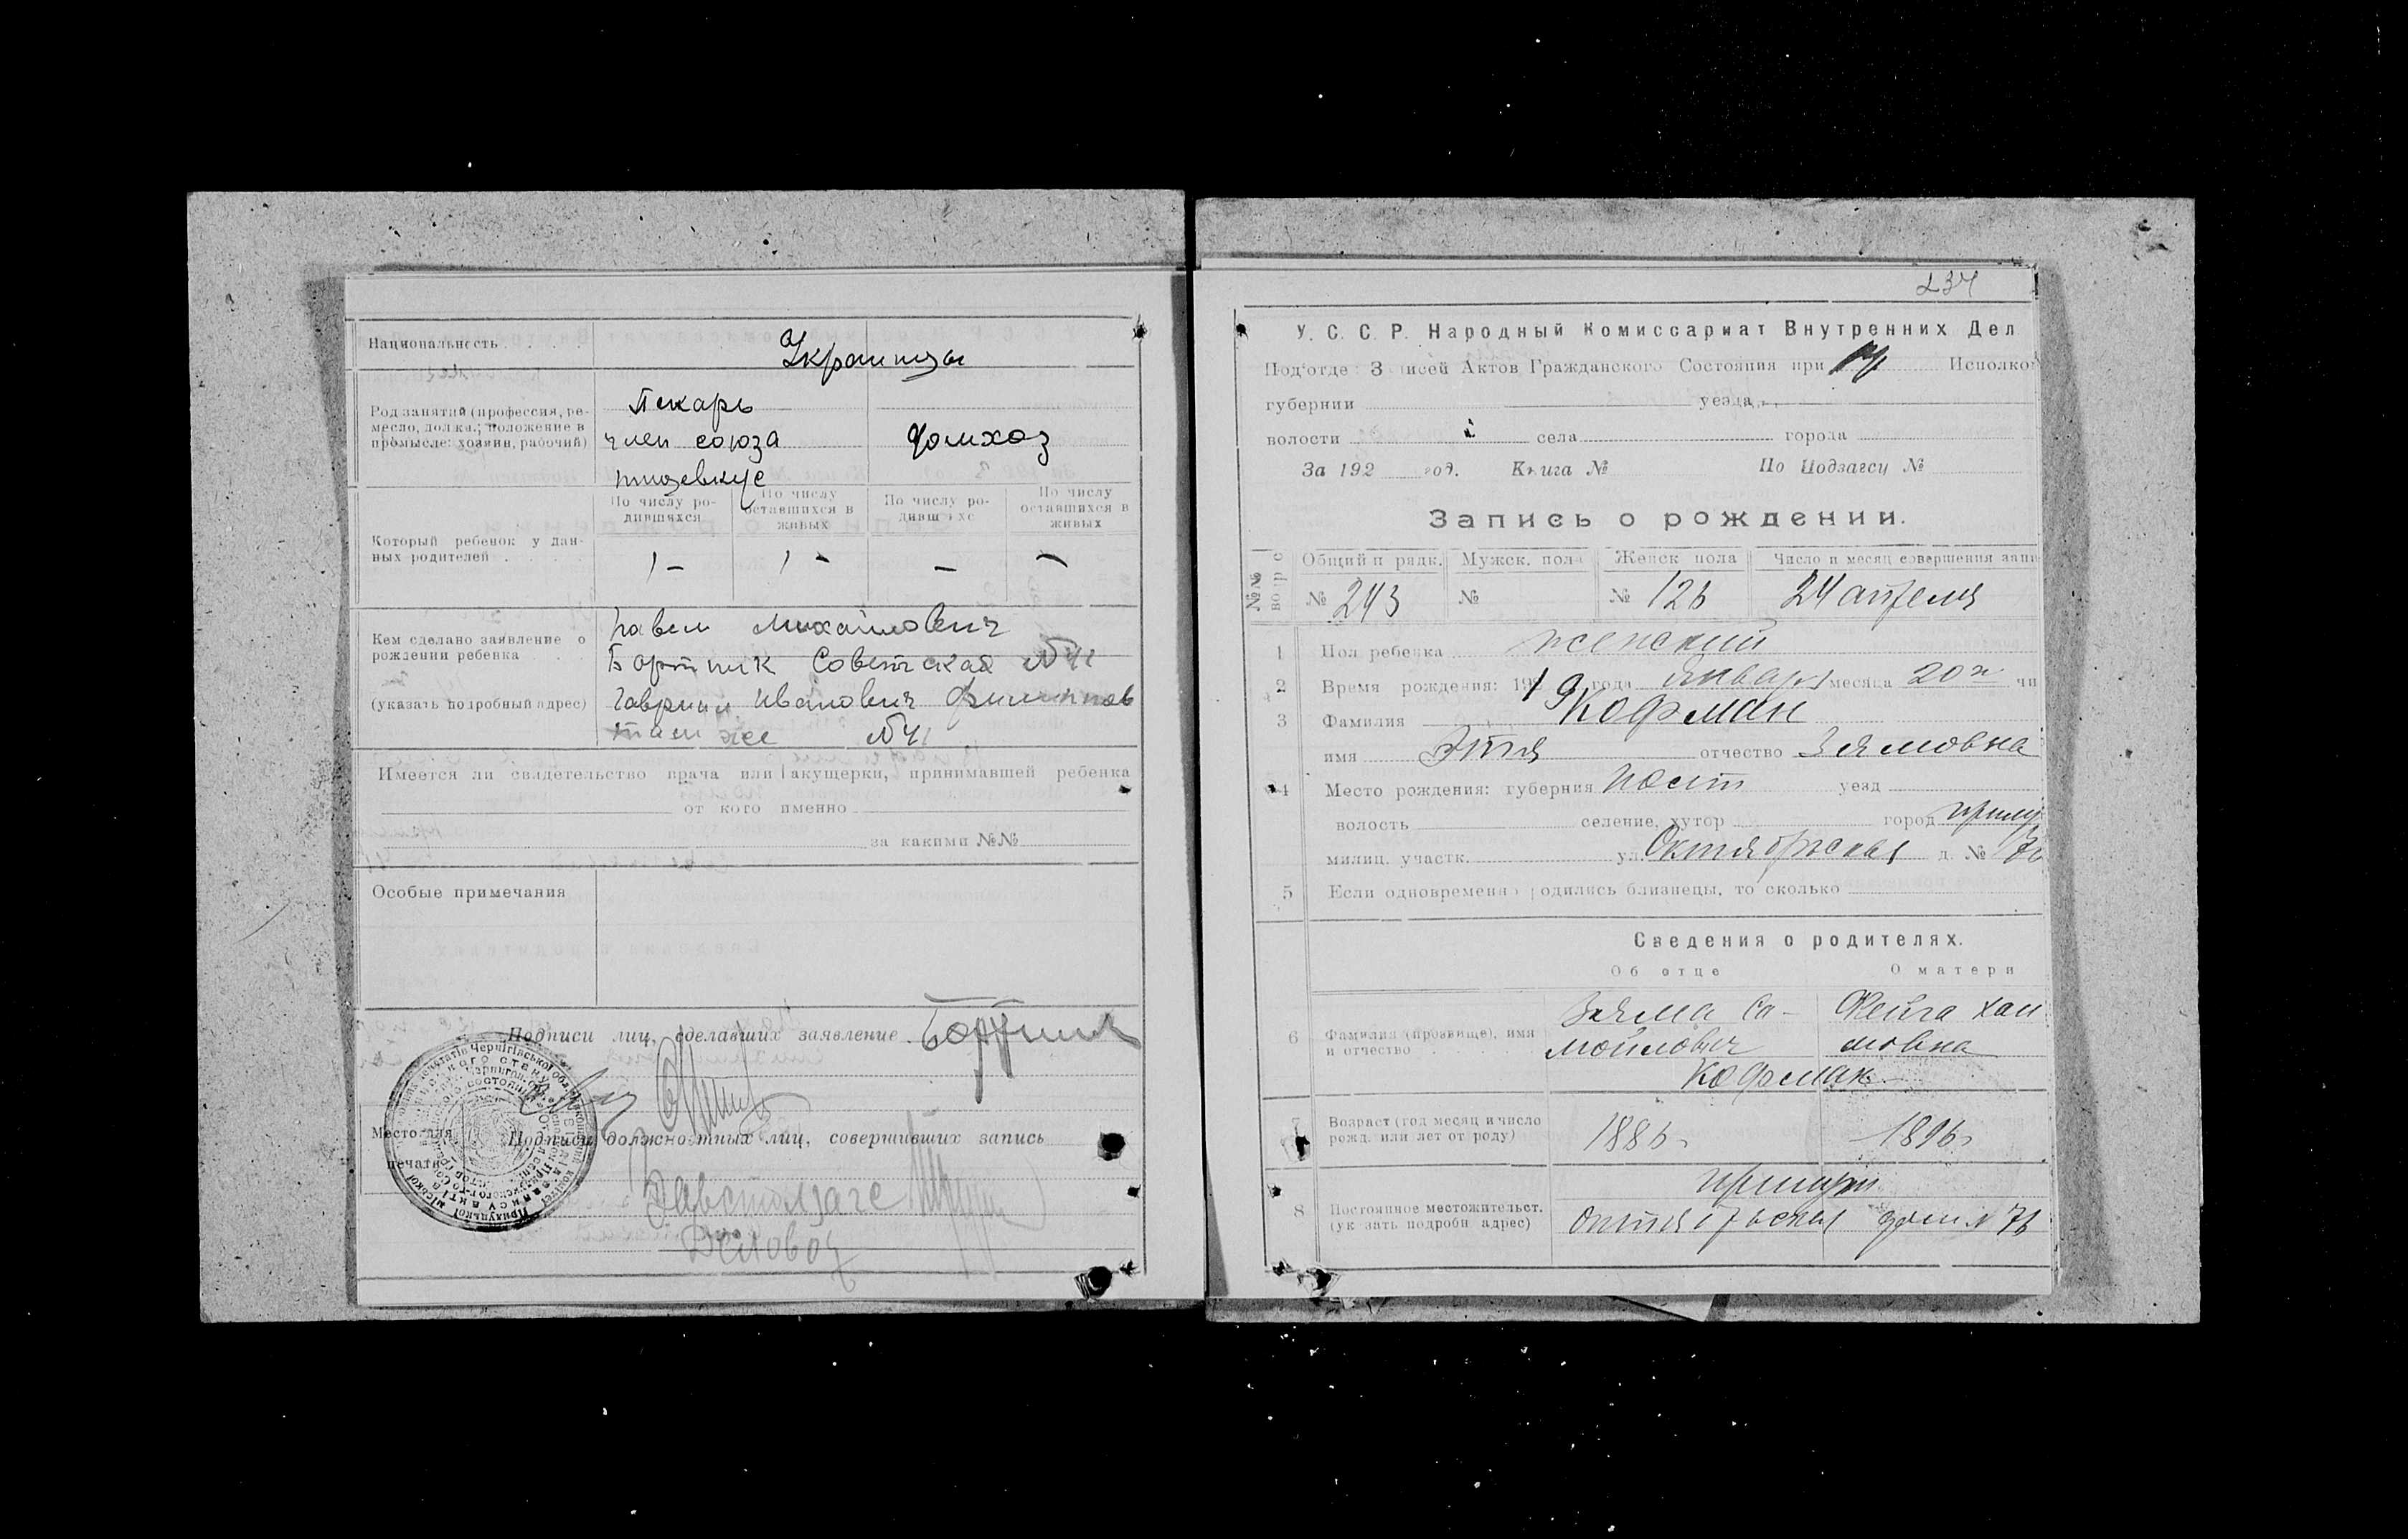 Национальность
Украинцы
Род занятий (профессия, ре-
месло, должн.; положение в
промысле: хозяин, рабочий)
Пекарь
член союза
пищевкус
домхоз
По числу ро-
дившихся
По числу
оставшихся в
живых
По числу ро-
дивш хс
По числу
оставшихся в
живых
Который ребенок у дан-
ных родителей
1 – 1 – – –
Кем сделано заявление о
рождении ребенка
(указать подробный адрес)
Павел Михайлович
Бортник Советская №41
Гавриил Иванович Филиппов
там же №41
Имеется ли свидетельство врача или акушерки, принимавшей ребенка
от кого именно
за какими №№
Особые примечания
Подписи лиц, сделавших заявление Бортник
Место для
печати
Подписи должностных лиц, совершивших запись
Завстолзагс
Деловод
237
У. С. С. Р. Народный Комиссариат Внутренних Дел
Под'отде З писей Актов Гражданского Состояния при Исполко
губернии уезда
волости села города
За 192 год. Книга № По Подзагсу №
Запись о рождении.
№№
Общий п рядк. Мужск. пола Женск пола Число и месяц совершения запи
№ 243 № № 126 24 апреля
1 Пол ребенка женский
2 Время рождения: 1919 года января месяца 20го чи
3 Фамилия Кофман
имя Этля отчество Зямовна
4 Место рождения: губерния уезд
волость селение, хутор город Прилу
милиц. участк. ул. Октябрьская д. № 76
5 Если одновременно родились близнецы, то сколько
Сведения о родителях.
Об отце О матери
6 Фамилия (прозвище), имя
и отчество
Зяма Са-
мойлович
Фейга Хаи
мовна
Кофман
7 Возраст (год месяц и число
рожд. или лет от роду)
1886 1896
8 Постоянное местожительст.
(ук зать подробн адрес)
Прилуки
Октябрьская дом № 76